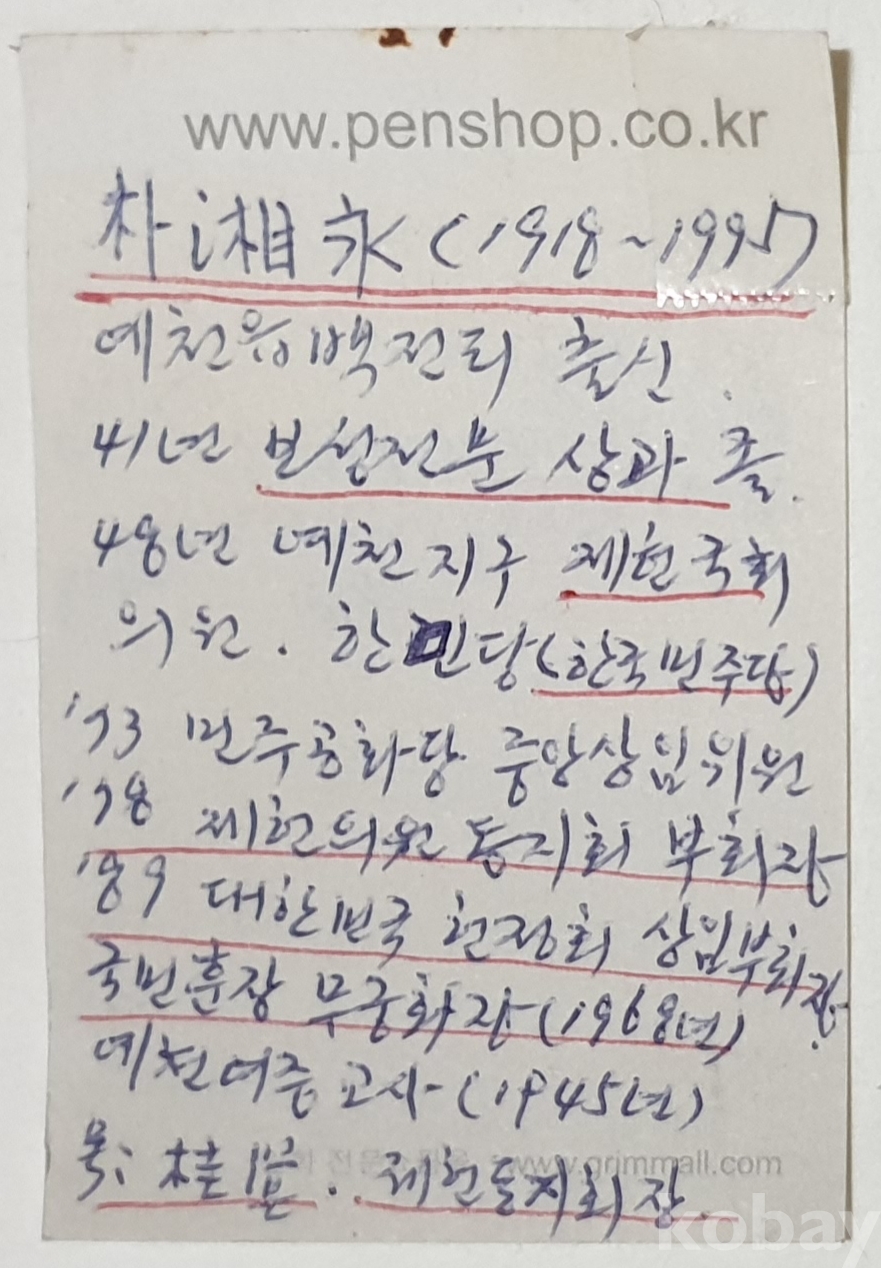 www.penshop.co.kr
朴湘永 (1918~1995)
예천읍 백전리 출신.
41년 보성전문 상과 졸.
48년 예천지구 제헌국회
의원. 한민당(한국민주당)
'73 민주공화당 중앙상임위원
'78 제헌의원 동지회 부회장
'89 대한민국 헌정회 상임부회장.
국민훈장 무궁화장(1968년)
예천여중 교사(1945년)
호: 桂
전문 www.grimmall.com
제헌동지회장.
kobay